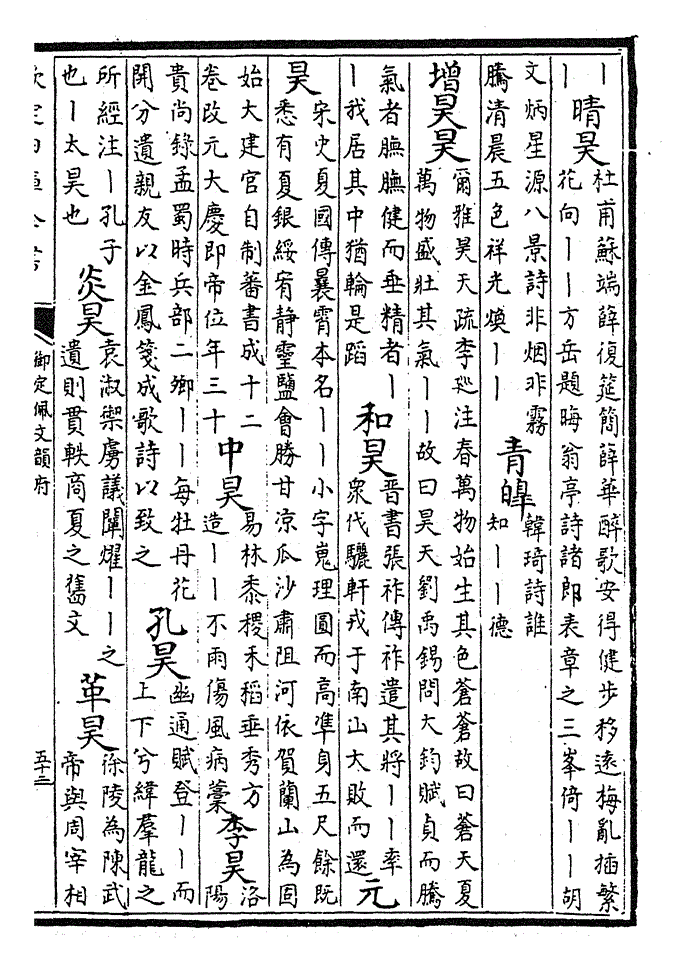 丨
丨
晴昊
杜甫蘇端薛復筵簡薛華醉歌安得健步移遠梅亂插繁
花向丨丨方岳題晦翁亭詩諸郎表章之三峯倚丨丨胡
文炳星源八景詩非烟非霧
騰清晨五色祥光煥丨丨
青皥
韓琦詩誰
知丨丨德
增昊昊
爾雅昊天疏李廵注春萬物始生其色蒼蒼故曰蒼天夏
萬物盛壯其氣丨丨故曰昊天劉禹錫問大鈞賦貞而騰
氣者膴膴健而垂精者丨
丨我居其中猶輪是蹈
和昊
晉書張祚傳祚遣其將丨丨率
衆伐驪軒戎于南山大敗而還
元
昊
宋史夏國傳曩霄本名丨丨小字嵬理圓而高凖身五尺餘既
悉有夏銀綏宥静靈鹽會勝甘涼瓜沙肅阻河依賀蘭山為固
始大建官自制蕃書成十二
卷改元大慶即帝位年三十
中昊
易林黍稷禾稻垂秀方
造丨丨不雨傷風病藁
李昊
洛
陽
貴尚錄孟蜀時兵部二卿丨丨每牡丹花
開分遺親友以金鳳箋成歌詩以致之
孔昊
幽通賦登丨丨而
上下兮緯羣龍之
所經注丨孔子
也丨太昊也
炎昊
袁淑禦虜議闡燿丨丨之
遺則貫軼商夏之舊文
革昊
徐陵為陳武
帝與周宰相
欽定四庫全書
御定佩文韻府
五十三